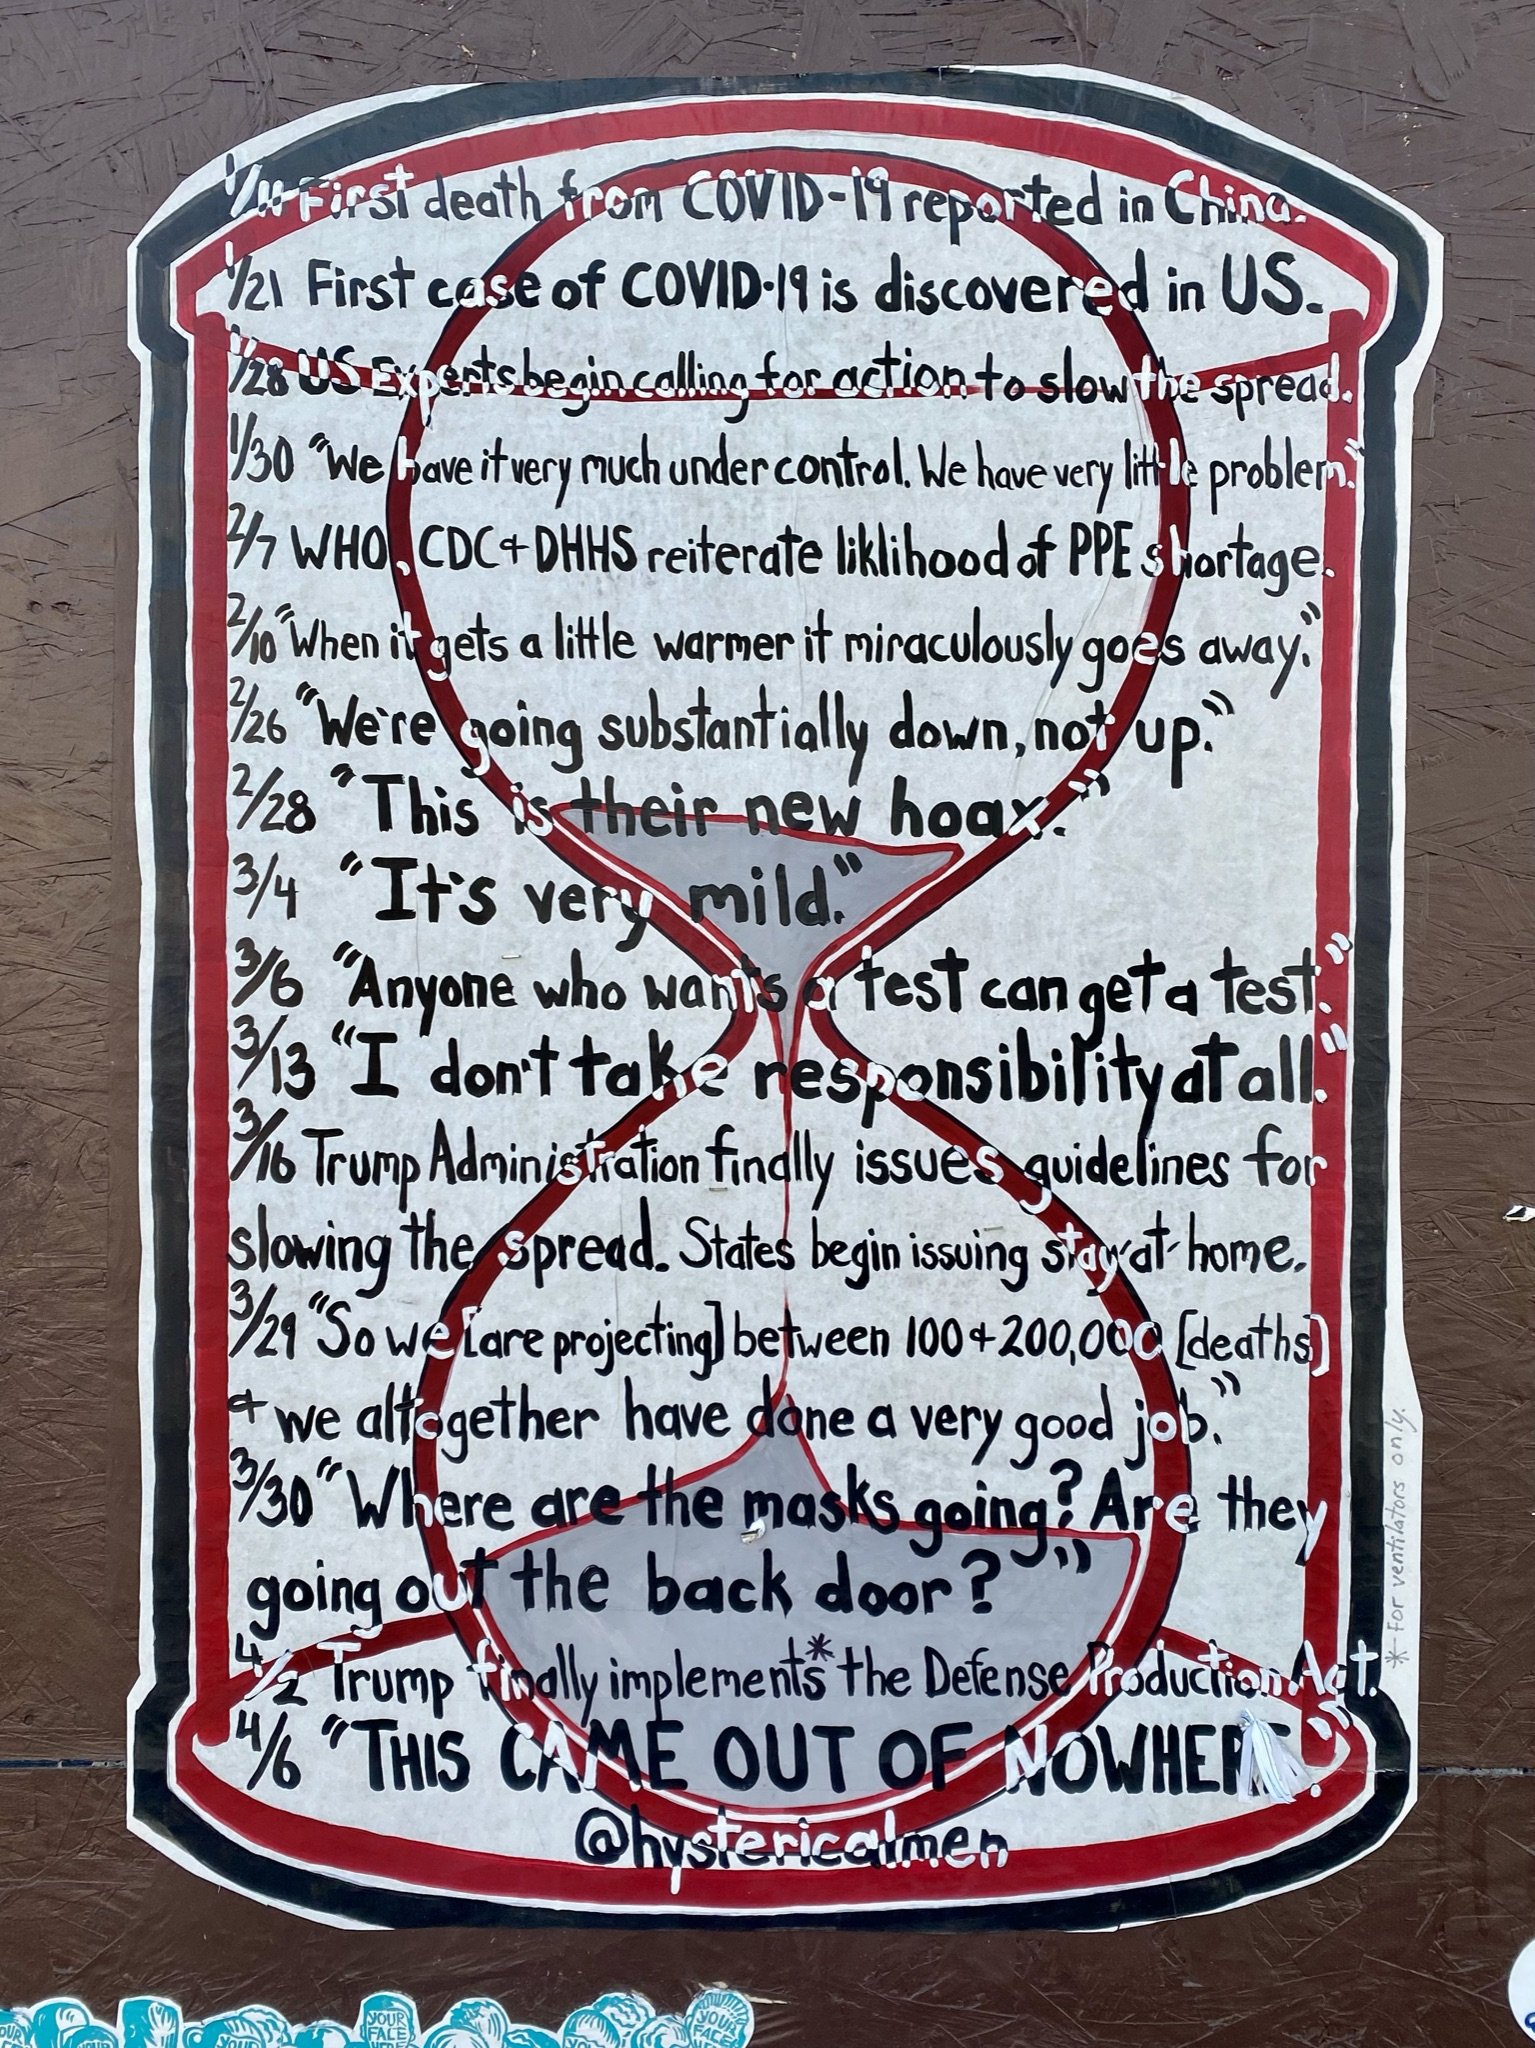 1/11 First death from COVID-19 reported in China.
1/21 First case of COVID-19 is discovered in US.
1/28 US Experts begin calling for action to slow the spread.
1/30 "We have it very much under control. We have very little problem."
2/7 WHO, CDC + DHHS reiterate liklihood of PPE shortage.
2/10 "When it gets a little warmer it miraculously goes away."
2/26 "We're going substantially down, not up."
2/28 "This is their new hoax."
3/4 "It's very mild."
3/6 "Anyone who wants a test can get a test."
3/13 "I don't take responsibility at all."
3/16 Trump Administration finally issues guidelines for
slowing the spread. States begin issuing stay-at-home.
3/29 "So we [are projecting] between 100 + 200,000 [deaths]
+ we altogether have done a very good job."
3/30 "Where are the masks going? Are they
going out the back door?"
4/2 Trump finally implements* the Defense Production Act.
4/6 "THIS CAME OUT OF NOWHERE."
@hystericalmen
* For ventilators only.
YOUR
FACE
HERE
YOUR
FACE
HERE